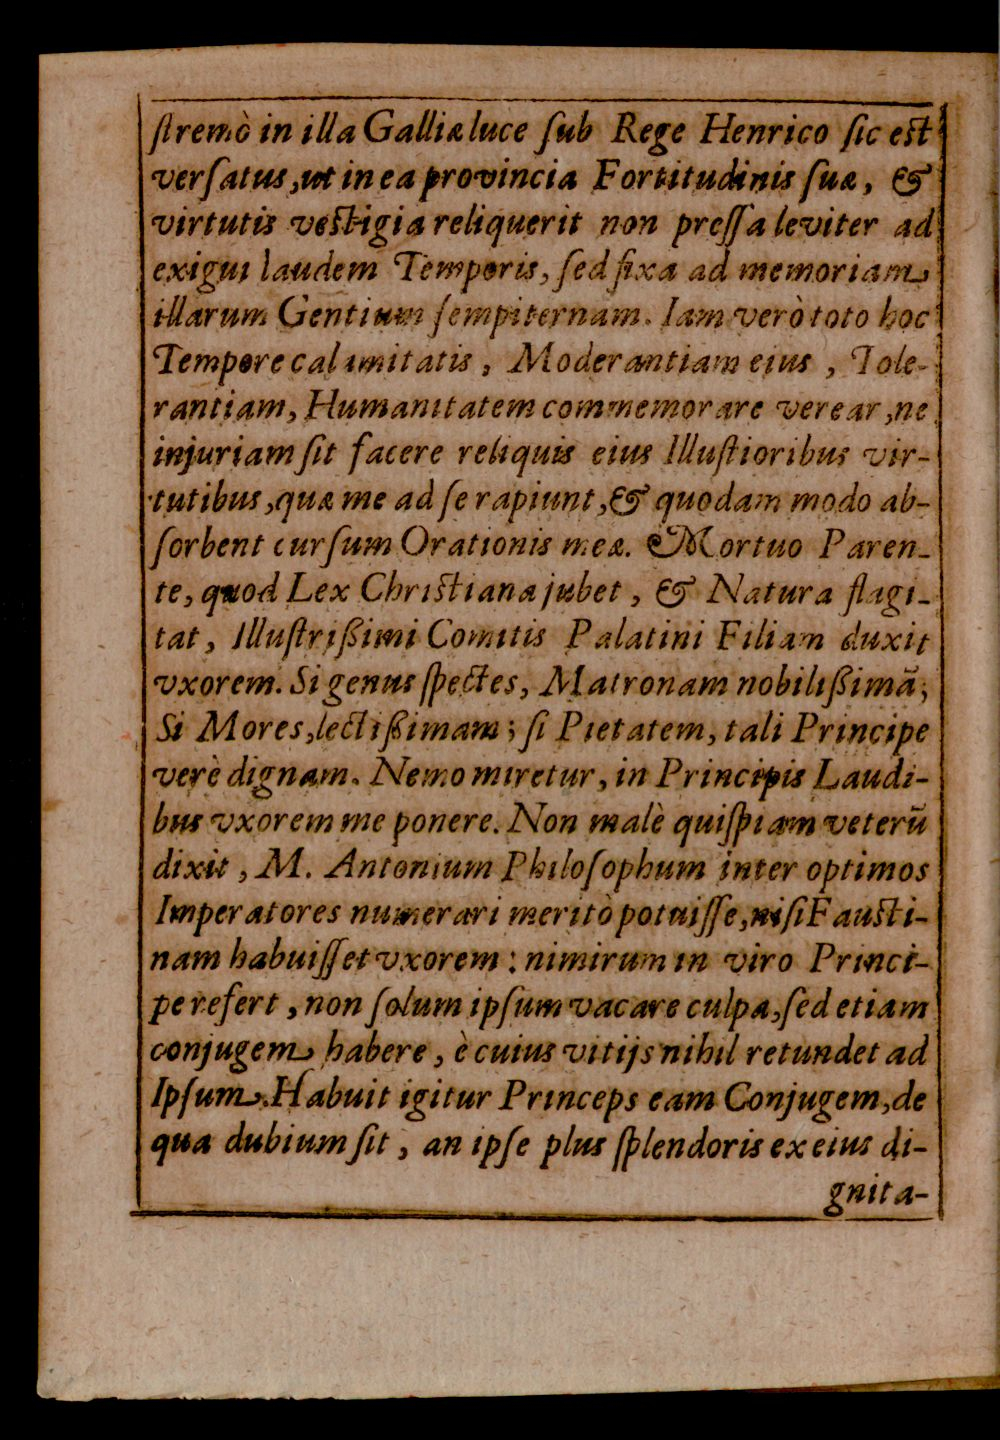 ſtremò in illa Galliæ luce ſub Rege Henrico ſic est
verſatus, ut in ea provincia Fortitudinis ſuæ, &
virtutis vestigia reliquerit non preſſa leviter ad
exigui laudem Temporis, ſed fixa ad memoriam
illarum Gentium ſempiternam. Iam verò toto hoc
Tempore calamitatis, Moderantiam eius, Tole-
rantiam, Humanitatem commemorare verear, ne
injuriam ſit facere reliquis eius Illuſtioribus vir-
tutibus, quæ me ad ſe rapiunt, & quodam modo ab-
ſorbent curſum Orationis meæ. Mortuo Paren-
te, quod Lex Christiana jubet, & Natura flagi-
tat, Illuſtrißimi Comitis Palatini Filiam duxit
vxorem. Si genus ſpectes, Matronam nobilißimã;
Si Mores, lectißimam; ſi Pietatem, tali Principe
verè dignam. Nemo miretur, in Principis Laudi-
bus vxorem me ponere. Non malè quiſpiam veterũ
dixit, M. Antonium Philoſophum inter optimos
Imperatores numerari meritò potuiſſe, niſi Fausti-
nam habuiſſet vxorem: nimirum in viro Princi-
pe refert, non ſolum ipſum vacare culpa, ſed etiam
conjugem habere, è cuius vitijs nihil retundet ad
Ipſum. Habuit igitur Princeps eam Conjugem, de
qua dubium ſit, an ipſe plus ſplendoris ex eius di-
gnita-